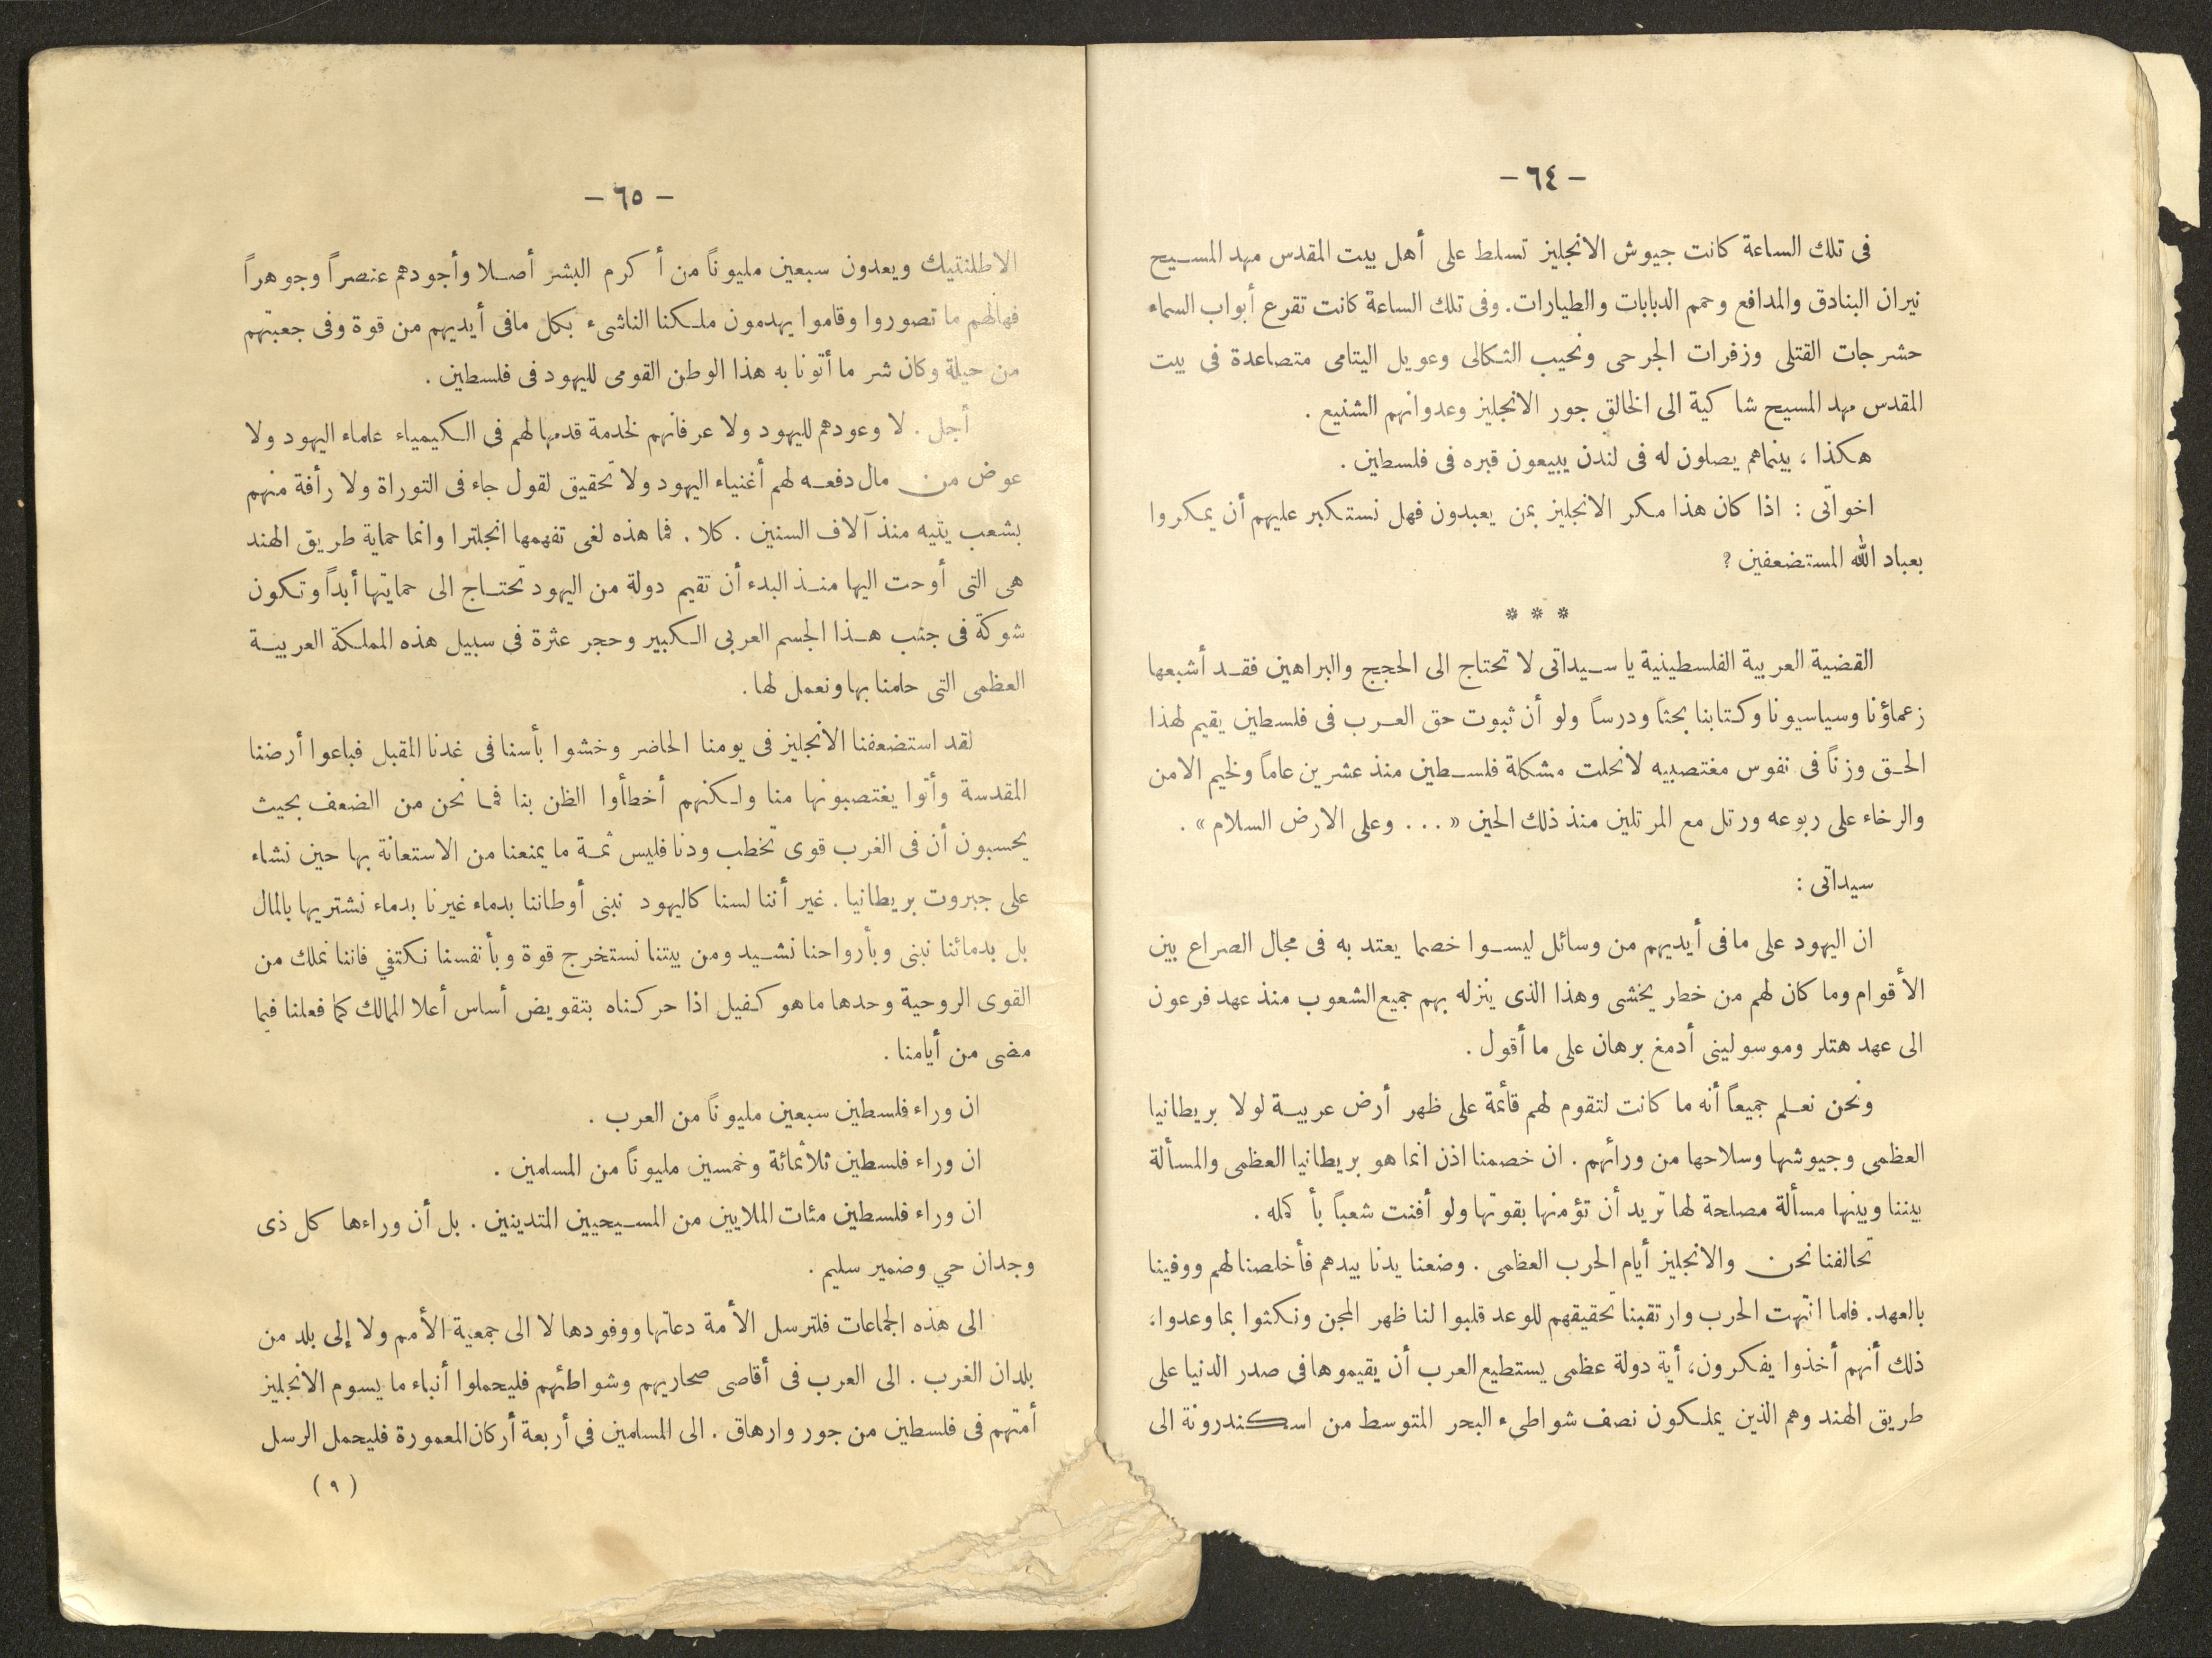 — ٦٤ —
فى تلك الساعة كانت جيوش الانجليز تسلط على أهل بيت المقدس مهد المسيح
نيران البنادق والمدافع وحمم الدبابات والطيارات. وفى تلك الساعة كانت تقرع أبواب السماء
حشرجات القتلى وزفرات الجرحى ونحيب الثكالى وعويل اليتامى متصاعدة فى بيت
المقدس مهد المسيح شاكية الى الخالق جور الانجليز وعدوانهم الشنيع .
هكذا ، بينماهم يصلون له فى لندن يبيعون قبره فى فلسطين .
اخواتى : اذا كان هذا مكر الانجليز بمن يعبدون فهل نستكبر عليهم أن يمكروا
بعباد الله المستضعفين ؟
* * *
القضية العربية الفلسطينية يا سيداتى لا تحتاج الى الحجج والبراهين فقد أشبعها
زعماؤنا وسياسيونا وكتابنا بحثاً ودرساً ولو أن ثبوت حق العرب فى فلسطين يقيم لهذا
الحق وزناً فى نفوس مغتصبيه لانحلت مشكلة فلسطين منذ عشرين عاماً ولخيم الامن
والرخاء على ربوعه ورتل مع المرتلين منذ ذلك الحين « . . . وعلى الارض السلام » .
سيداتى :
ان اليهود على مافى أيديهم من وسائل ليسوا خصما يعتد به فى مجال الصراع بين
الأقوام وما كان لهم من خطر يخشى وهذا الذى ينزله بهم جميع الشعوب منذ عهد فرعون
الى عهد هتلر وموسولينى أدمغ برهان على ما أقول .
ونحن نعلم جميعاً أنه ما كانت لتقوم لهم قائمة على ظهر أرض عربية لولا بريطانيا
العظمى وجيوشها وسلاحها من ورائهم . ان خصمنا اذن انما هو بريطانيا العظمى والمسألة
بيننا وبينها مسألة مصلحة لها تريد أن تؤمنها بقوتها ولو أفنت شعباً بأكمله .
تحالفنا نحن والانجليز أيام الحرب العظمى . وضعنا يدنا بيدهم فأخلصنا لهم ووفينا
بالعهد. فلما انتهت الحرب وارتقبنا تحقيقهم للوعد قلبوا لنا ظهر المجن ونكثوا بما وعدوا،
ذلك أنهم أخذوا يفكرون، أية دولة عظمى يستطيع العرب أن يقيموها في صدر الدنيا على
طريق الهند وهم الذين يملكون نصف شواطىء البحر المتوسط من اسكندرونة الى
— ٦٥ —
الاطلنتيك ويعدون سبعين مليوناً من أكرم البشر أصلا وأجودهم عنصراً وجوهراً
فهالهم ما تصوروا وقاموا يهدمون ملكنا الناشىء بكل مافى أيديهم من قوة وفى جعبتهم
من حيلة وكان شر ما أتونا به هذا الوطن القومى لليهود فى فلسطين .
أجل . لا وعودهم لليهود ولا عرفانهم لخدمة قدمها لهم فى الكيمياء علماء اليهود ولا
عوض من مال دفعه لهم أغنياء اليهود ولا تحقيق لقول جاء فى التوراة ولا رأفة منهم
بشعب يتيه منذ آلاف السنين . كلا . فما هذه لغى تفهمها انجلترا وانما حماية طريق الهند
هى التى أوحت اليها منذ البدء أن تقيم دولة من اليهود تحتاج الى حمايتها أبداً وتكون
شوكة فى جنب هذا الجسم العربى الكبير وحجر عثرة فى سبيل هذه المملكة العربية
العظمى التى حلمنا بها ونعمل لها .
لقد استضعفنا الانجليز فى يومنا الحاضر وخشوا بأسنا فى غدنا المقبل فباعوا أرضنا
المقدسة وأتوا يغتصبونها منا ولكنهم أخطأوا الظن بنا فما نحن من الضعف بحيث
يحسبون أن فى الغرب قوى تخطب ودنا فليس ثمة ما يمنعنا من الاستعانة بها حين نشاء
على جبروت بريطانيا . غير أننا لسنا كاليهود نبنى أوطاننا بدماء غيرنا بدماء نشتريها بالمال
بل بدمائنا نبنى وبأرواحنا نشيد ومن بيتنا نستخرج قوة وبأنفسنا نكتفي فاننا نملك من
القوى الروحية وحدها ما هو كفيل اذا حركناه بتقويض أساس أعلا الممالك كما فعلنا فيما
مضى من أيامنا .
ان وراء فلسطين سبعين مليوناً من العرب .
ان وراء فلسطين ثلاثمائة وخمسين مليوناً من المسلمين .
ان وراء فلسطين مئات الملايين من المسيحيين المتدينين . بل أن وراءها كل ذى
وجدان حي وضمير سليم .
الى هذه الجماعات فلترسل الأمة دعاتها ووفودها لا الى جمعية الأمم ولا إلى بلد من
بلدان الغرب . الى العرب فى أقاصى صحاريهم وشواطئهم فليحملوا أنباء ما يسوم الانجليز
أمتهم فى فلسطين من جور وارهاق . الى المسلمين في أربعة أركان المعمورة فليحمل الرسل
( ٩ )